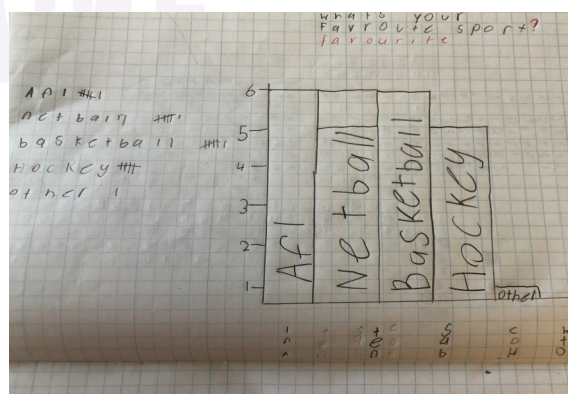 whats your
favroute sport?
favourite
Afl
netball
basketball
Hockey
other
6
5
4
3
2
1
Afl
Netball
Basketball
Hockey
other